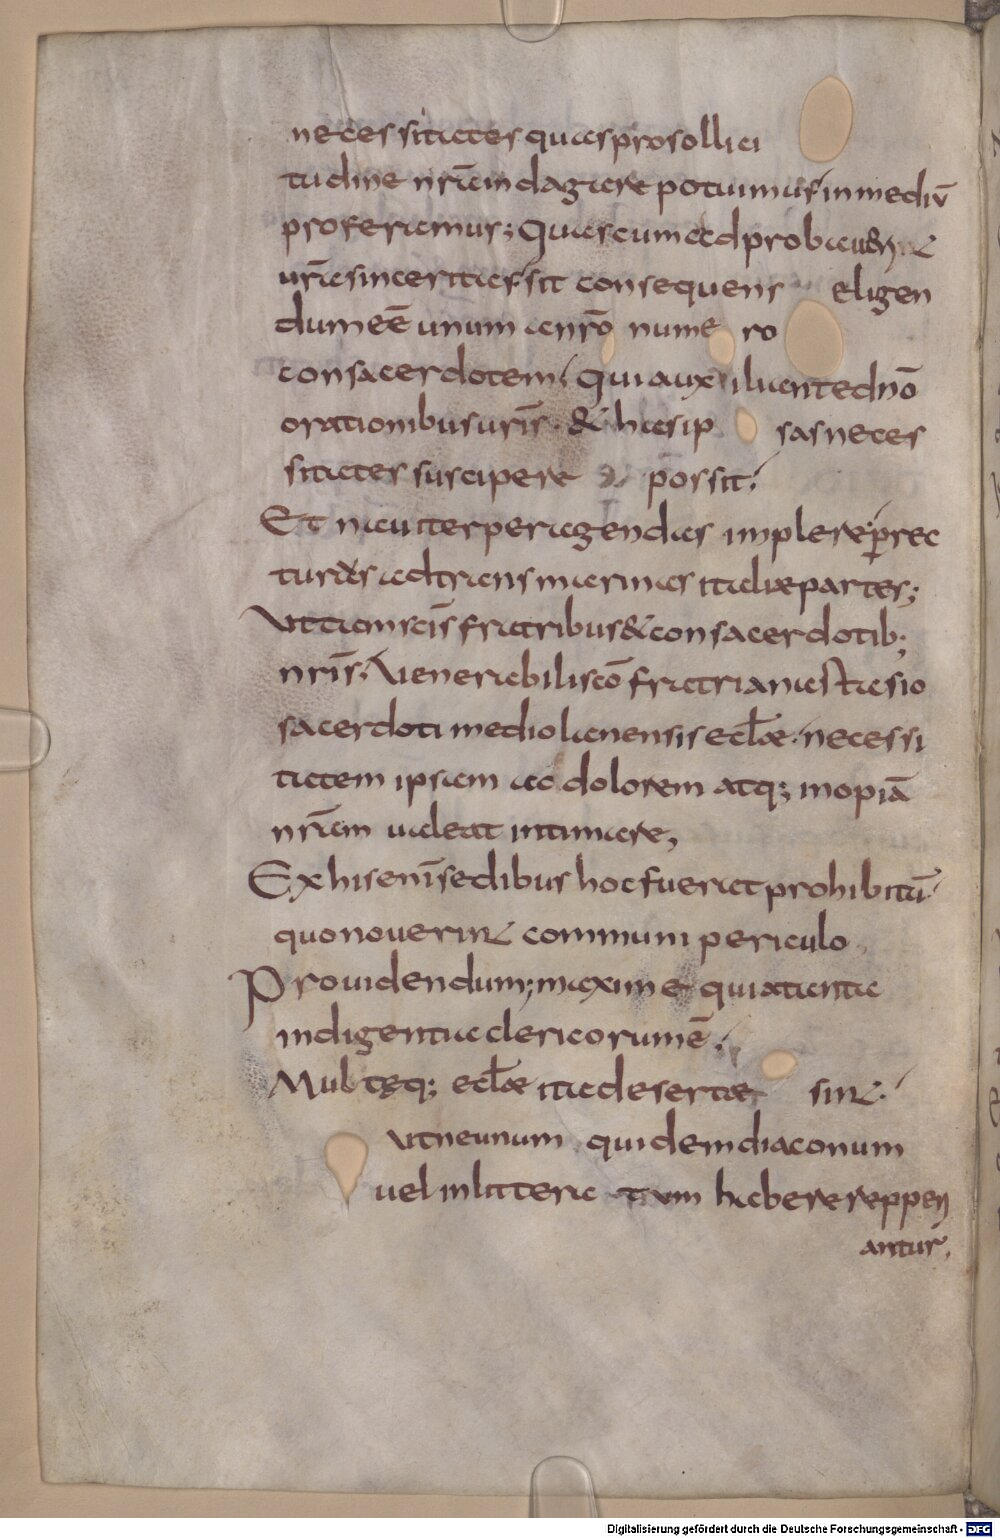 necessitates quas pro sollici
tudine nrā indagare potuimus in mediū
proferamus; Quas cum ad probauer&
urā sinceritas sit consequens eligen
dum eē unum a nrō nume ro
consacerdotem, qui auxiliante dnō
orationibus uris & has ip sas neces
sitates suscipere possit;
Et nauiter peragendas implere prec
turas ad transmarinas italiæ partes;
Ut tam scīs fratribus & consacerdotib;
nrīs, Venerabili scō fratri anastasio
sacerdoti mediolanensis eclæ necessi
tatem ipsam ac dolorem atq; inopiā
nrām ualeat intimare,
Ex his enī sedibus hoc fuerat prohibitū
quo nouerint communi periculo
Prouidendum; maxime quia tanta
indigentia clericorum ē,
Multęq; eclæ ita desertæ sint
ut ne unum quidem diaconum
uel inlitteratum habere repperi
antur,
Digitalisierung gefördert durch die Deutsche Forschungsgemeinschaft - DFG